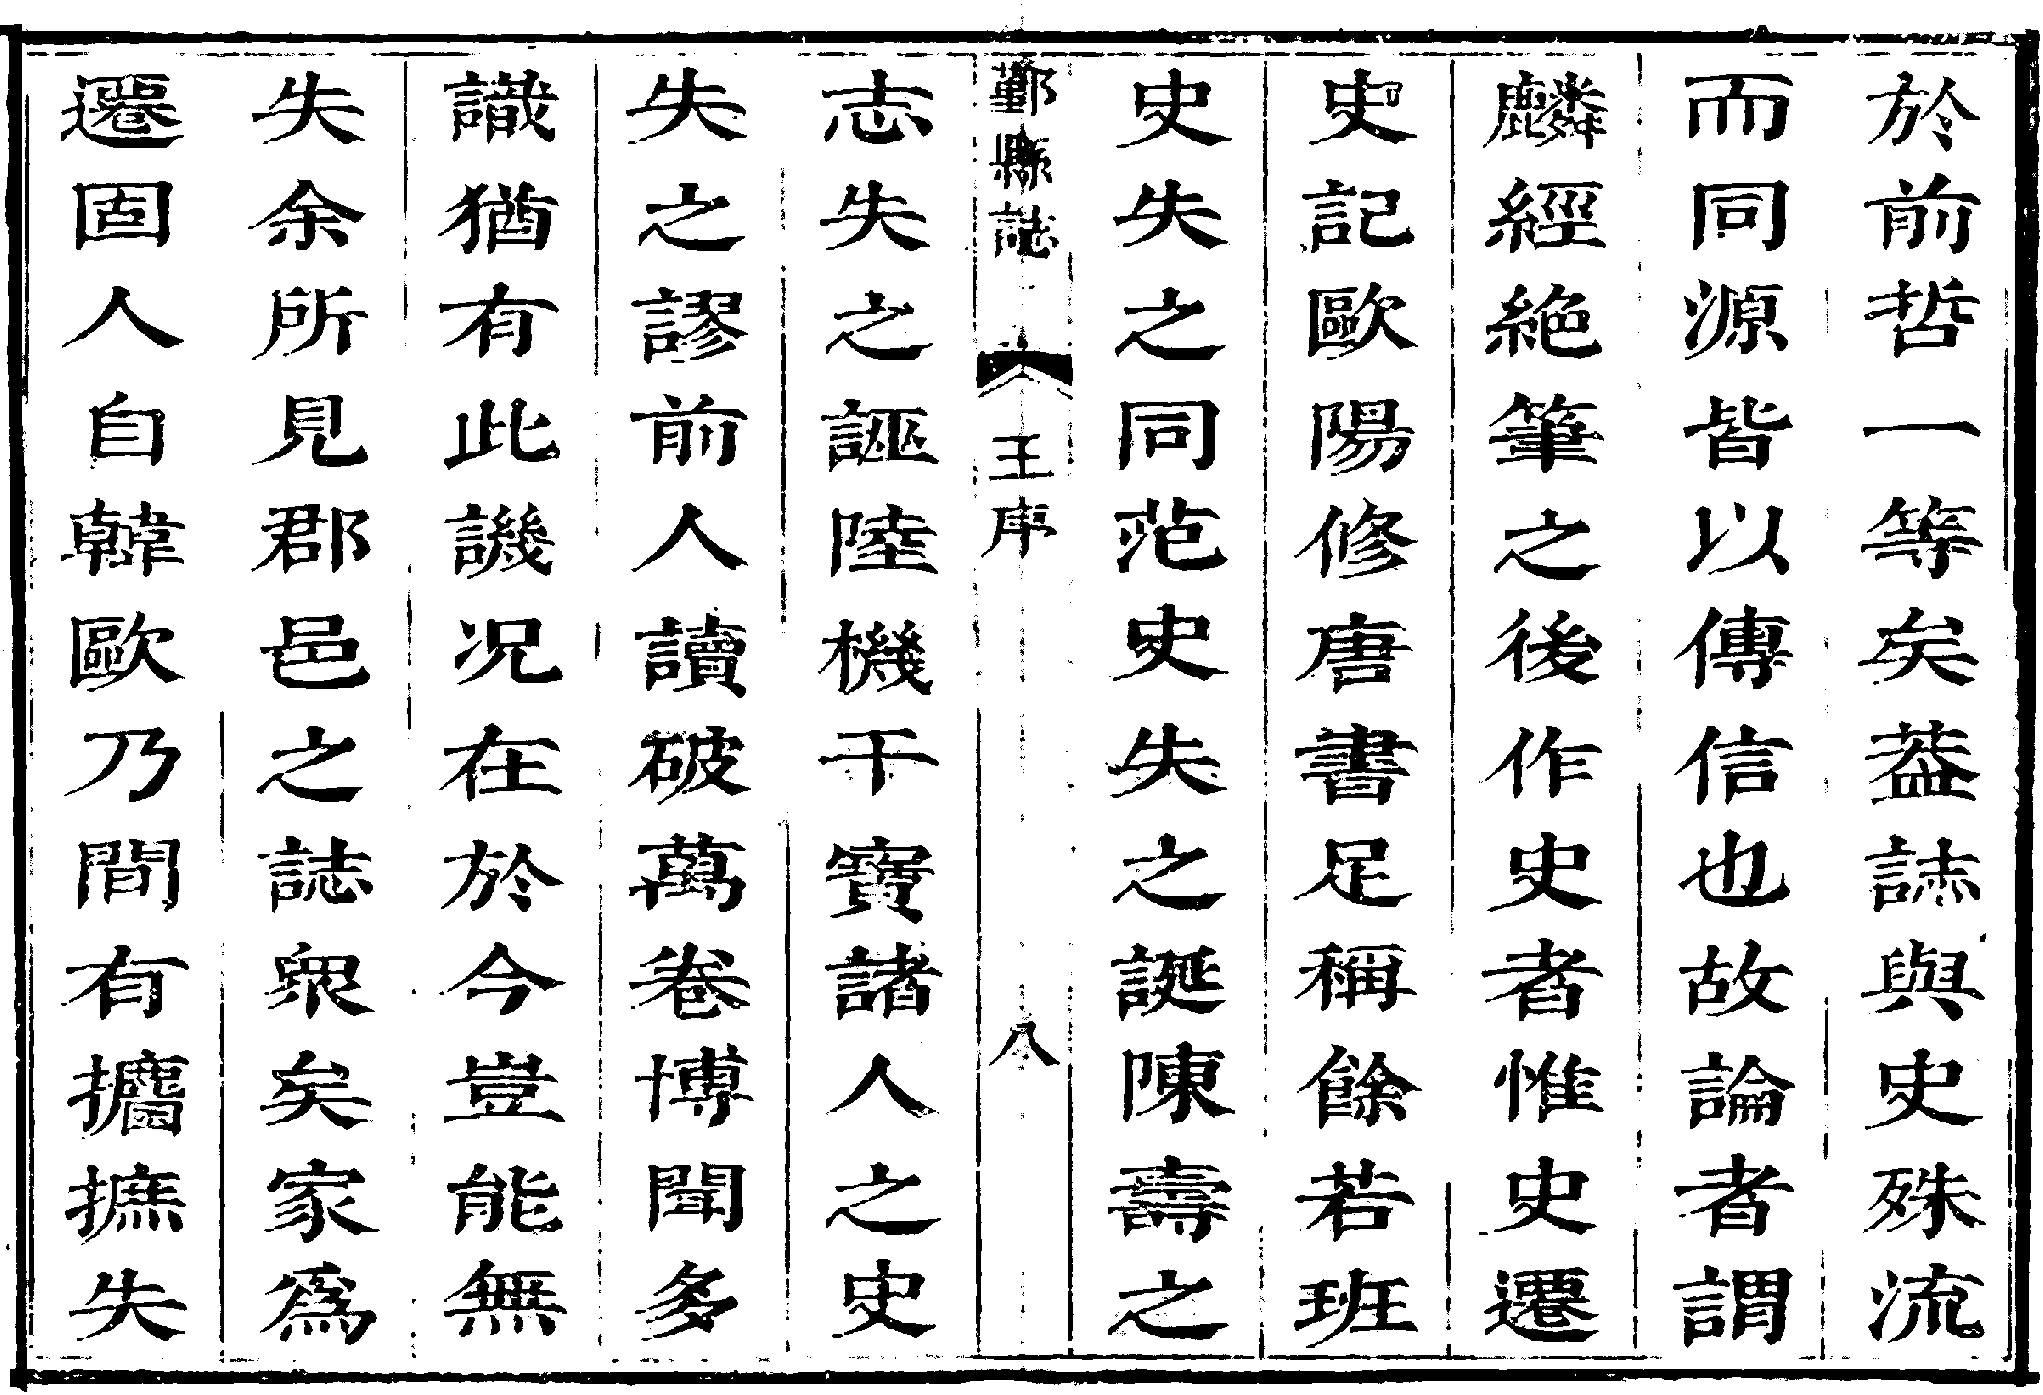 於前哲一等矣葢誌與史殊流
而同源皆以傳信也故論者謂
麟經絕筆之後作史者惟史遷
史記歐陽修唐書足稱餘若班
史失之同范史失之誕陳壽之
鄞縣誌
王序
八
志失之誣陸機干寶諸人之史
失之謬前人讀破萬卷博聞多
識猶有此譏况在於今豈能無
失余所見郡邑之誌衆矣家爲
遷固人自韓歐乃間有攟摭失